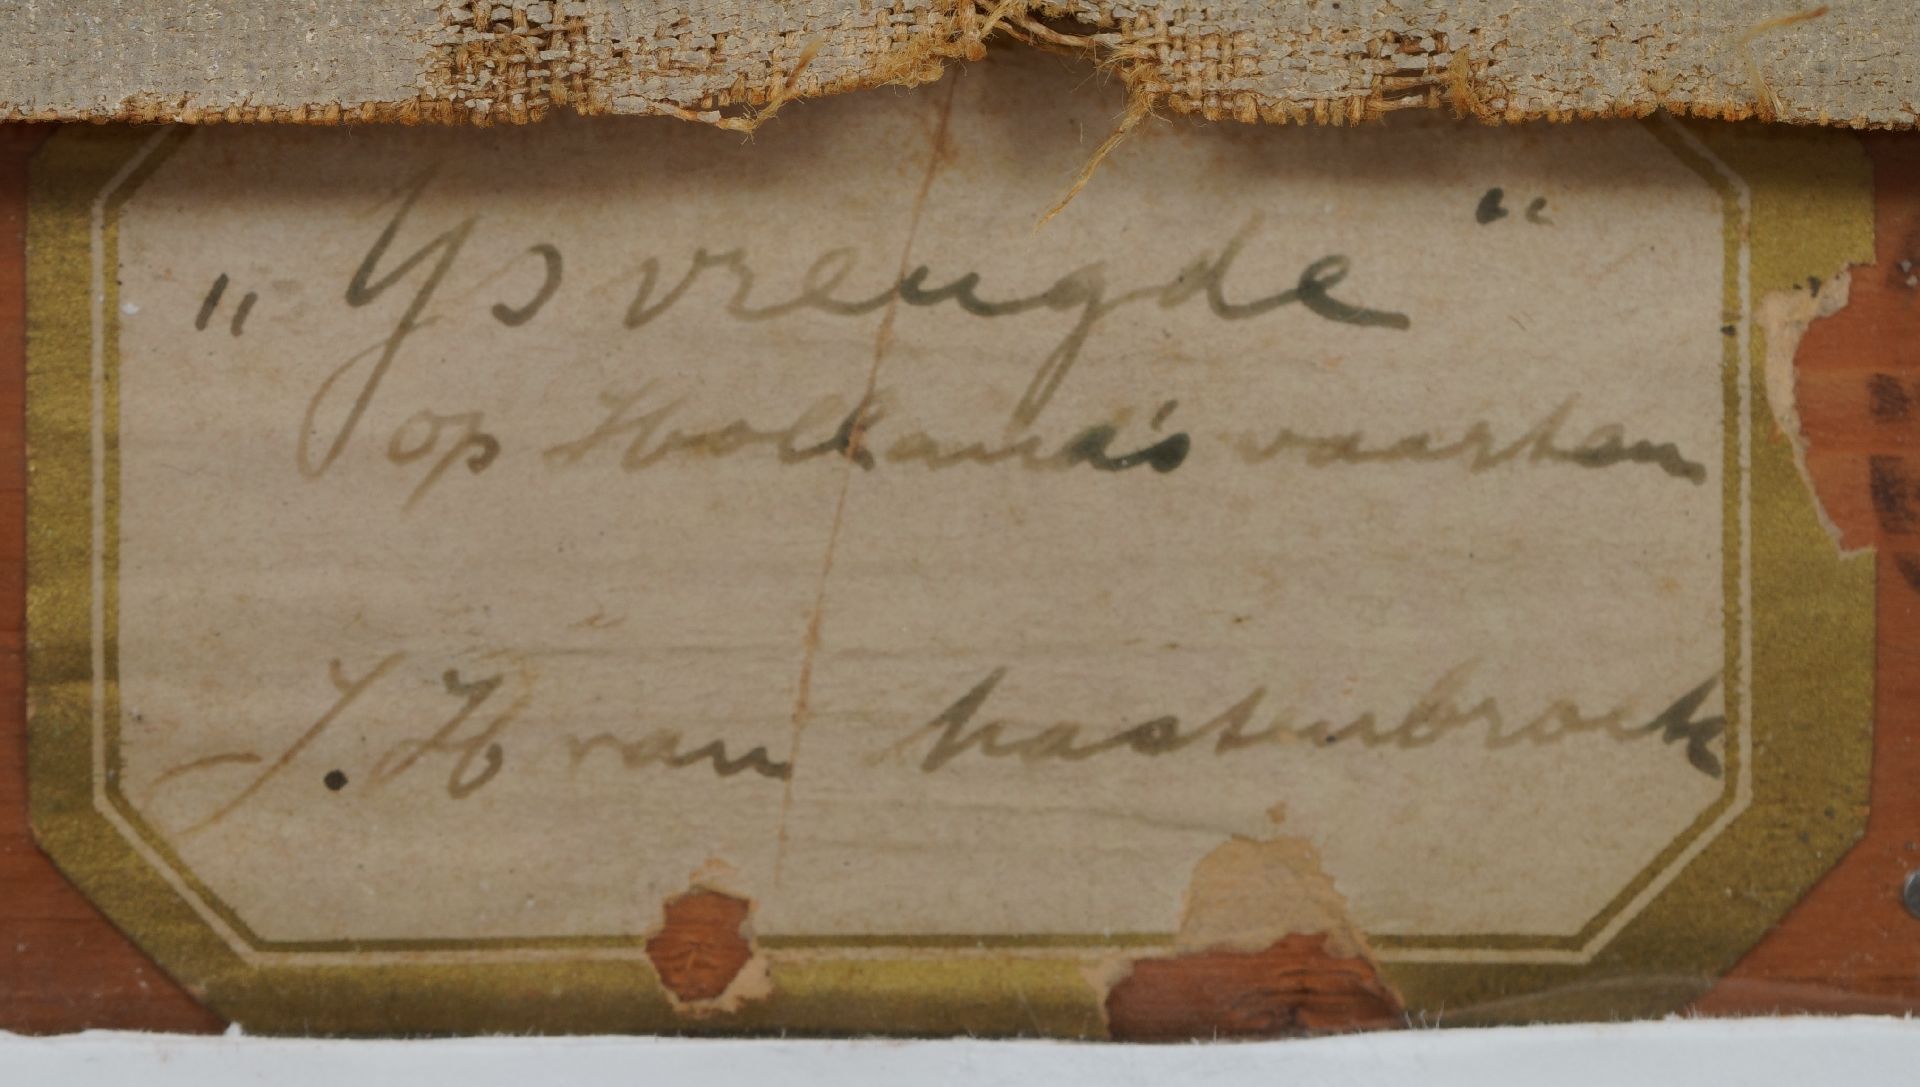 „Ys vreugde“
op Holland's vaarten
J. H van Mastenbroek